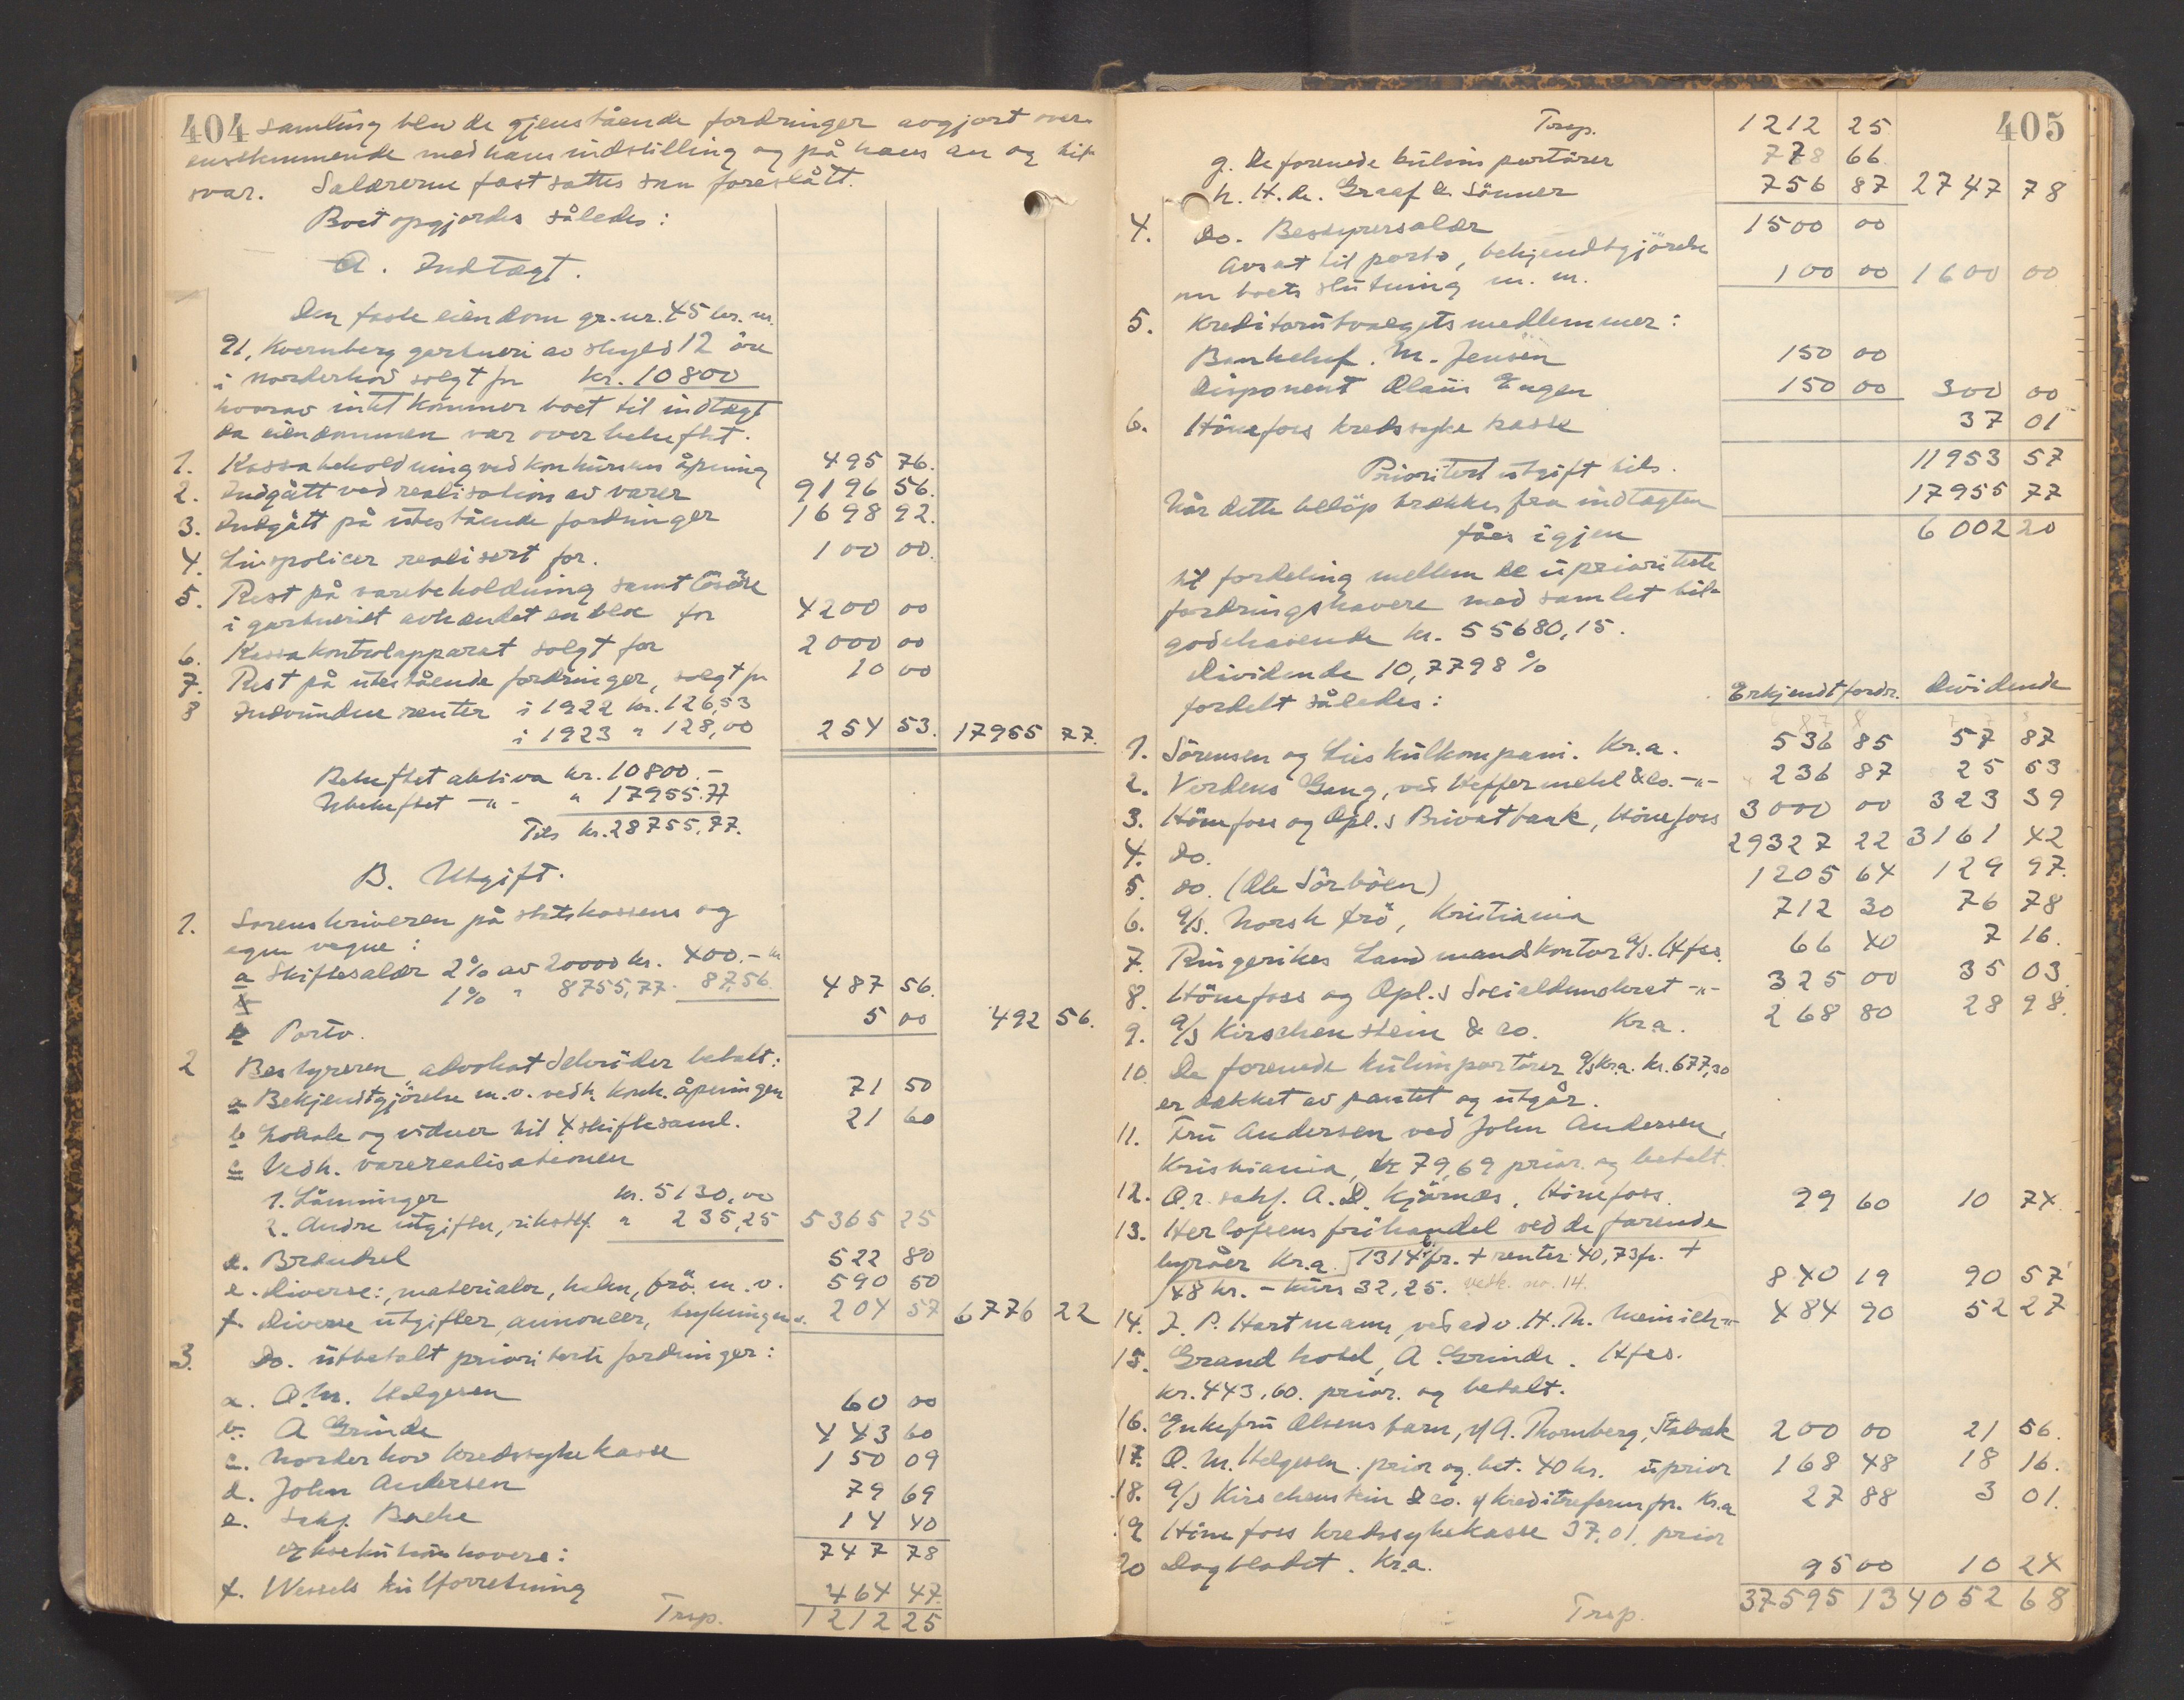 404 samling blev de gjenstående fordringer avgjort over-
ensstemmende med hans indstilling og på hans an og til-
svar. Salærerne fastsattes som foreslått.
Boet opgjordes således:
A. Indtægt.
Den faste eiendom gr. nr. 45 br. nr.
91, Kvernberg gartneri av skyld 12 öre
i Norderhov solgt for kr. 10800
hvorav intet kommer boet til indtægt
da eiendommen var overbeheftet.
1. Kassabeholdning ved konkursens åpning 495 76.
2. Indgått ved realisation av varer 9196 56.
3. Indgått på utestående fordringer 1698 92.
4. Livspolicer realisert for. 100 00.
5. Rest på varebeholdning samt lösöre
i gartneriet avhændet en bloc for 4200 00
6. Kassakontrolapparat solgt for 2000 00
7. Rest på utestående fordringer, solgt for 10 00
8 Indvundne renter i 1922 kr. 126,53
i 1923 " 128,00 254 53. 17955 77.
Beheftet aktiva kr. 10800.-
Ubeheftet -"- " 17955.77
Tils kr. 28755,77.
B. Utgift.
1. Sorenskriveren på statskassens og
egne vegne:
a Skiftesalær 2% av 20000 kr. 400.-
1% " 8755,77. 87,56. 487 56.
b Porto. 5 00 492 56.
2 Bestyreren, advokat Schrüder betalt:
a Bekjendtgjörelse m.v. vedk. konk. åpningen 71 50
b Lokale og vidner til 4 skiftesaml. 21 60
c Vedk. varerealisationen
1. Lönninger kr. 5130,00
2. Andre utgifter, rikstlf. " 235,25 5365 25
d. Brændsel 522 80
e. Diverse: materialer, frö m.v. 590 50
f. Diverse utgifter, annoncer, 204 57 6776 22
3. Do. utbetalt prioriterte fordringer:
a. O. M. Helgesen 60 00
b. A Grinde 443 60
c. Norderhov kredssykekasse 150 09
d. John Andersen 79 69
e. Sakf. Bache 14 40
eksekutionshavere: 747 78
f. Wessels kulforretning 464 47.
Trsp. 1212 25
405
Trsp. 1212 25
g. De forenede kulimportörer 778 66
h. H. de. Graaf & Sönner 756 87 2747 78
4. Do. Bestyrersalær 1500 00
Avsat til porto, bekjendtgjörelse
om boets slutning m. m. 100 00 1600 00
5. Kreditorutvalgets medlemmer:
Bankchef. M. Jensen 150 00
Disponent Olaus Engen 150 00 300 00
6. Hönefoss kredssyke kasse 37 01
Prioritert utgift tils. 11953 57
Når dette belöp trækkes fra indtægten 17955 77
fåes igjen 6002 20
til fordeling mellem de uprioriterte
fordringshavere med samlet til-
godehavende kr. 55680,15.
Dividende 10,7798%
fordelt således: Erkjendt fordr. Dividende
1. Sörensen og Lies kulkompani. Kr.a. 536 85 57 87
2. Verdens Gang, ved Keffermehl & Co. -"- 236 87 25 53
3. Hönefoss og Opl.s Privatbank, Hönefoss 3000 00 323 39
4. Do. 29327 22 3161 42
5. Do. (Ole Sörböen) 1205 64 129 97.
6. A/S. Norsk frö, Kristiania 712 30 76 78
7. Ringerikes Landmandskontor A/S. Hfos. 66 40 7 16.
8. Hönefoss og Opl.s Socialdemokrat -"- 325 00 35 03.
9. A/S Kirschenstein & Co. Kr.a. 268 80 28 98.
10. De forenede kulimportörer A/S Kr.a. kr. 677,20
er dækket av pantet og utgår.
11. Fru Andersen ved John Andersen,
Kristiania, kr 79,69 prior. og betalt.
12. O.r. sakf. A. D. Kjærnæs, Hönefoss. 99 60 10 74.
13. Herlofsens fröhandel ved de forende
byråer Kr.a. 1314 fr. + renter 40,73 fr. +
48 kr. - kurs 32,25. vedk. no. 14. 840 19 90 57
14. J. P. Hartmann, ved adv. H. Th. Meinich -"- 484 90 52 27
15. Grand hotel, A Grinde. Hfos.
kr. 443,60. prior. og betalt.
16. Enkefru Olsens barn, v/ A. Thornberg, Stabæk 200 00 21 56.
17. O. M. Helgesen. prior og bet. 40 kr. uprior 168 48 18 16.
18. A/S Kirschenstein & Co. v/ Kreditreform for. Kr.a 27 88 3 01.
19 Hönefoss kredssykekasse 37,01. prior
20 Dagbladet. Kr.a. 95 00 10 24
Trsp. 37595 13 4052 68